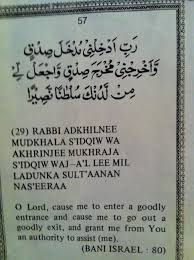 57
رَبِّ اَدْخِلْنِيْ مُدْخَلَ صِدْقٍ
وَّاَخْرِجْنِيْ مُخْرَجَ صِدْقٍ وَّاجْعَلْ لِّيْ
مِنْ لَّدُنْكَ سُلْطٰنًا نَّصِيْرًا
(29) RABBI ADKHILNEE
MUDKHALA S'IDQIW WA
AKHRIJNEE MUKHRAJA
S'IDQIW WAJ-A'L LEE MIL
LADUNKA SULT'AANAN
NAS'EERAA
O Lord, cause me to enter a goodly
entrance and cause me to go out a
goodly exit, and grant me from You
an authority to assist (me).
(BANI ISRAEL : 80)